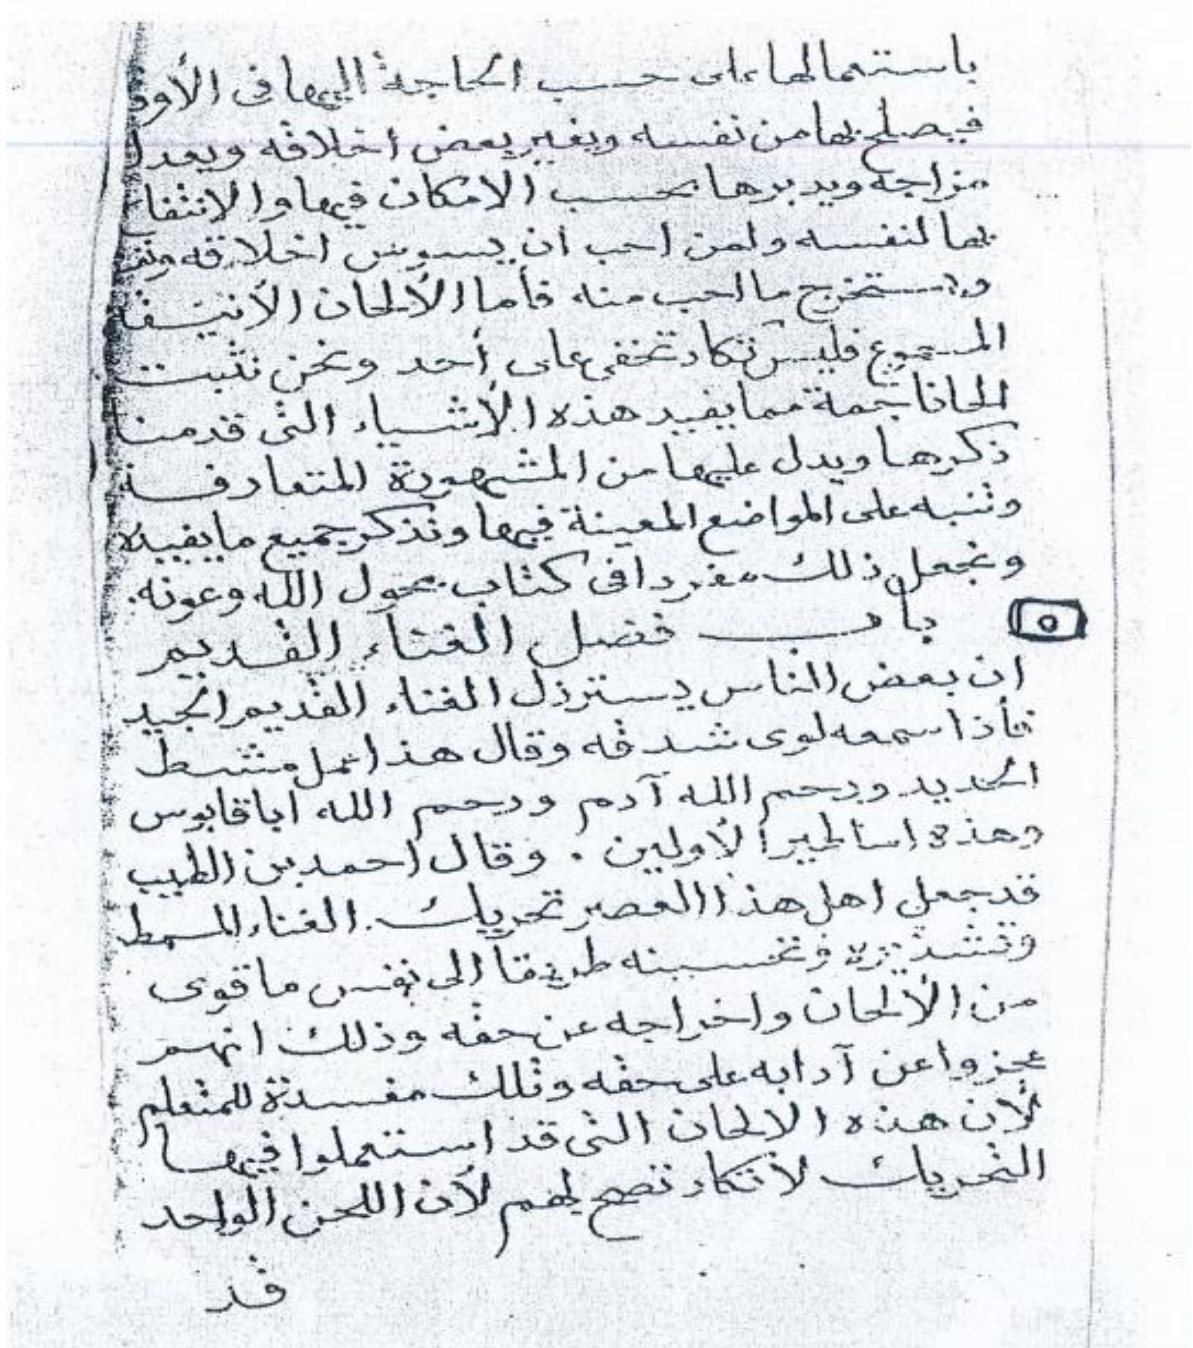 باستعمالها على حسب الحاجة اليها فى الأوو
فيصلح بها من نفسه ويغير بعض أخلاقه ويعدل
مزاجه ويدبرها بحسب الامكان فيها والانتفاع
بها لنفسه ولمن احب ان يسوس اخلاقه
ويستخرج ما احب منه فأما الألحان
المسموع فليس تكاد تخفى على أحد ونحن نثبت
الحانا جمة مما يفيد هذه الأشياء التى قدمنا
ذكرها ويدل عليها من المشهورة المتعارفة
وننبه على المواضع المعينة فيها ونذكر جميع ما يفيده
ونجعل ذلك مفردا فى كتاب بحول الله وعونه.
٥ باب فضل الغناء القديم
ان بعض الناس يسترذل الغناء القديم الجيد
فأذا سمعه لوى شدقه وقال هذا عمل مشط
الحديد ورحم الله آدم ورحم الله اباقابوس
وهذه اساطير الأولين . وقال احمد بن الطيب
قد جعل اهل هذا العصر تحريك الغناء
وتحسينه طريقا الى ما قوى
من الألحان واخراجه عن حقه وذلك انهم
عجزوا عن آدابه على حقه وتلك مفسدة للمتعلم
لأن هذه الالحان التى قد استعملوا فيها
التحريك لا تكاد تصح لهم لأن اللحن الواحد
قد